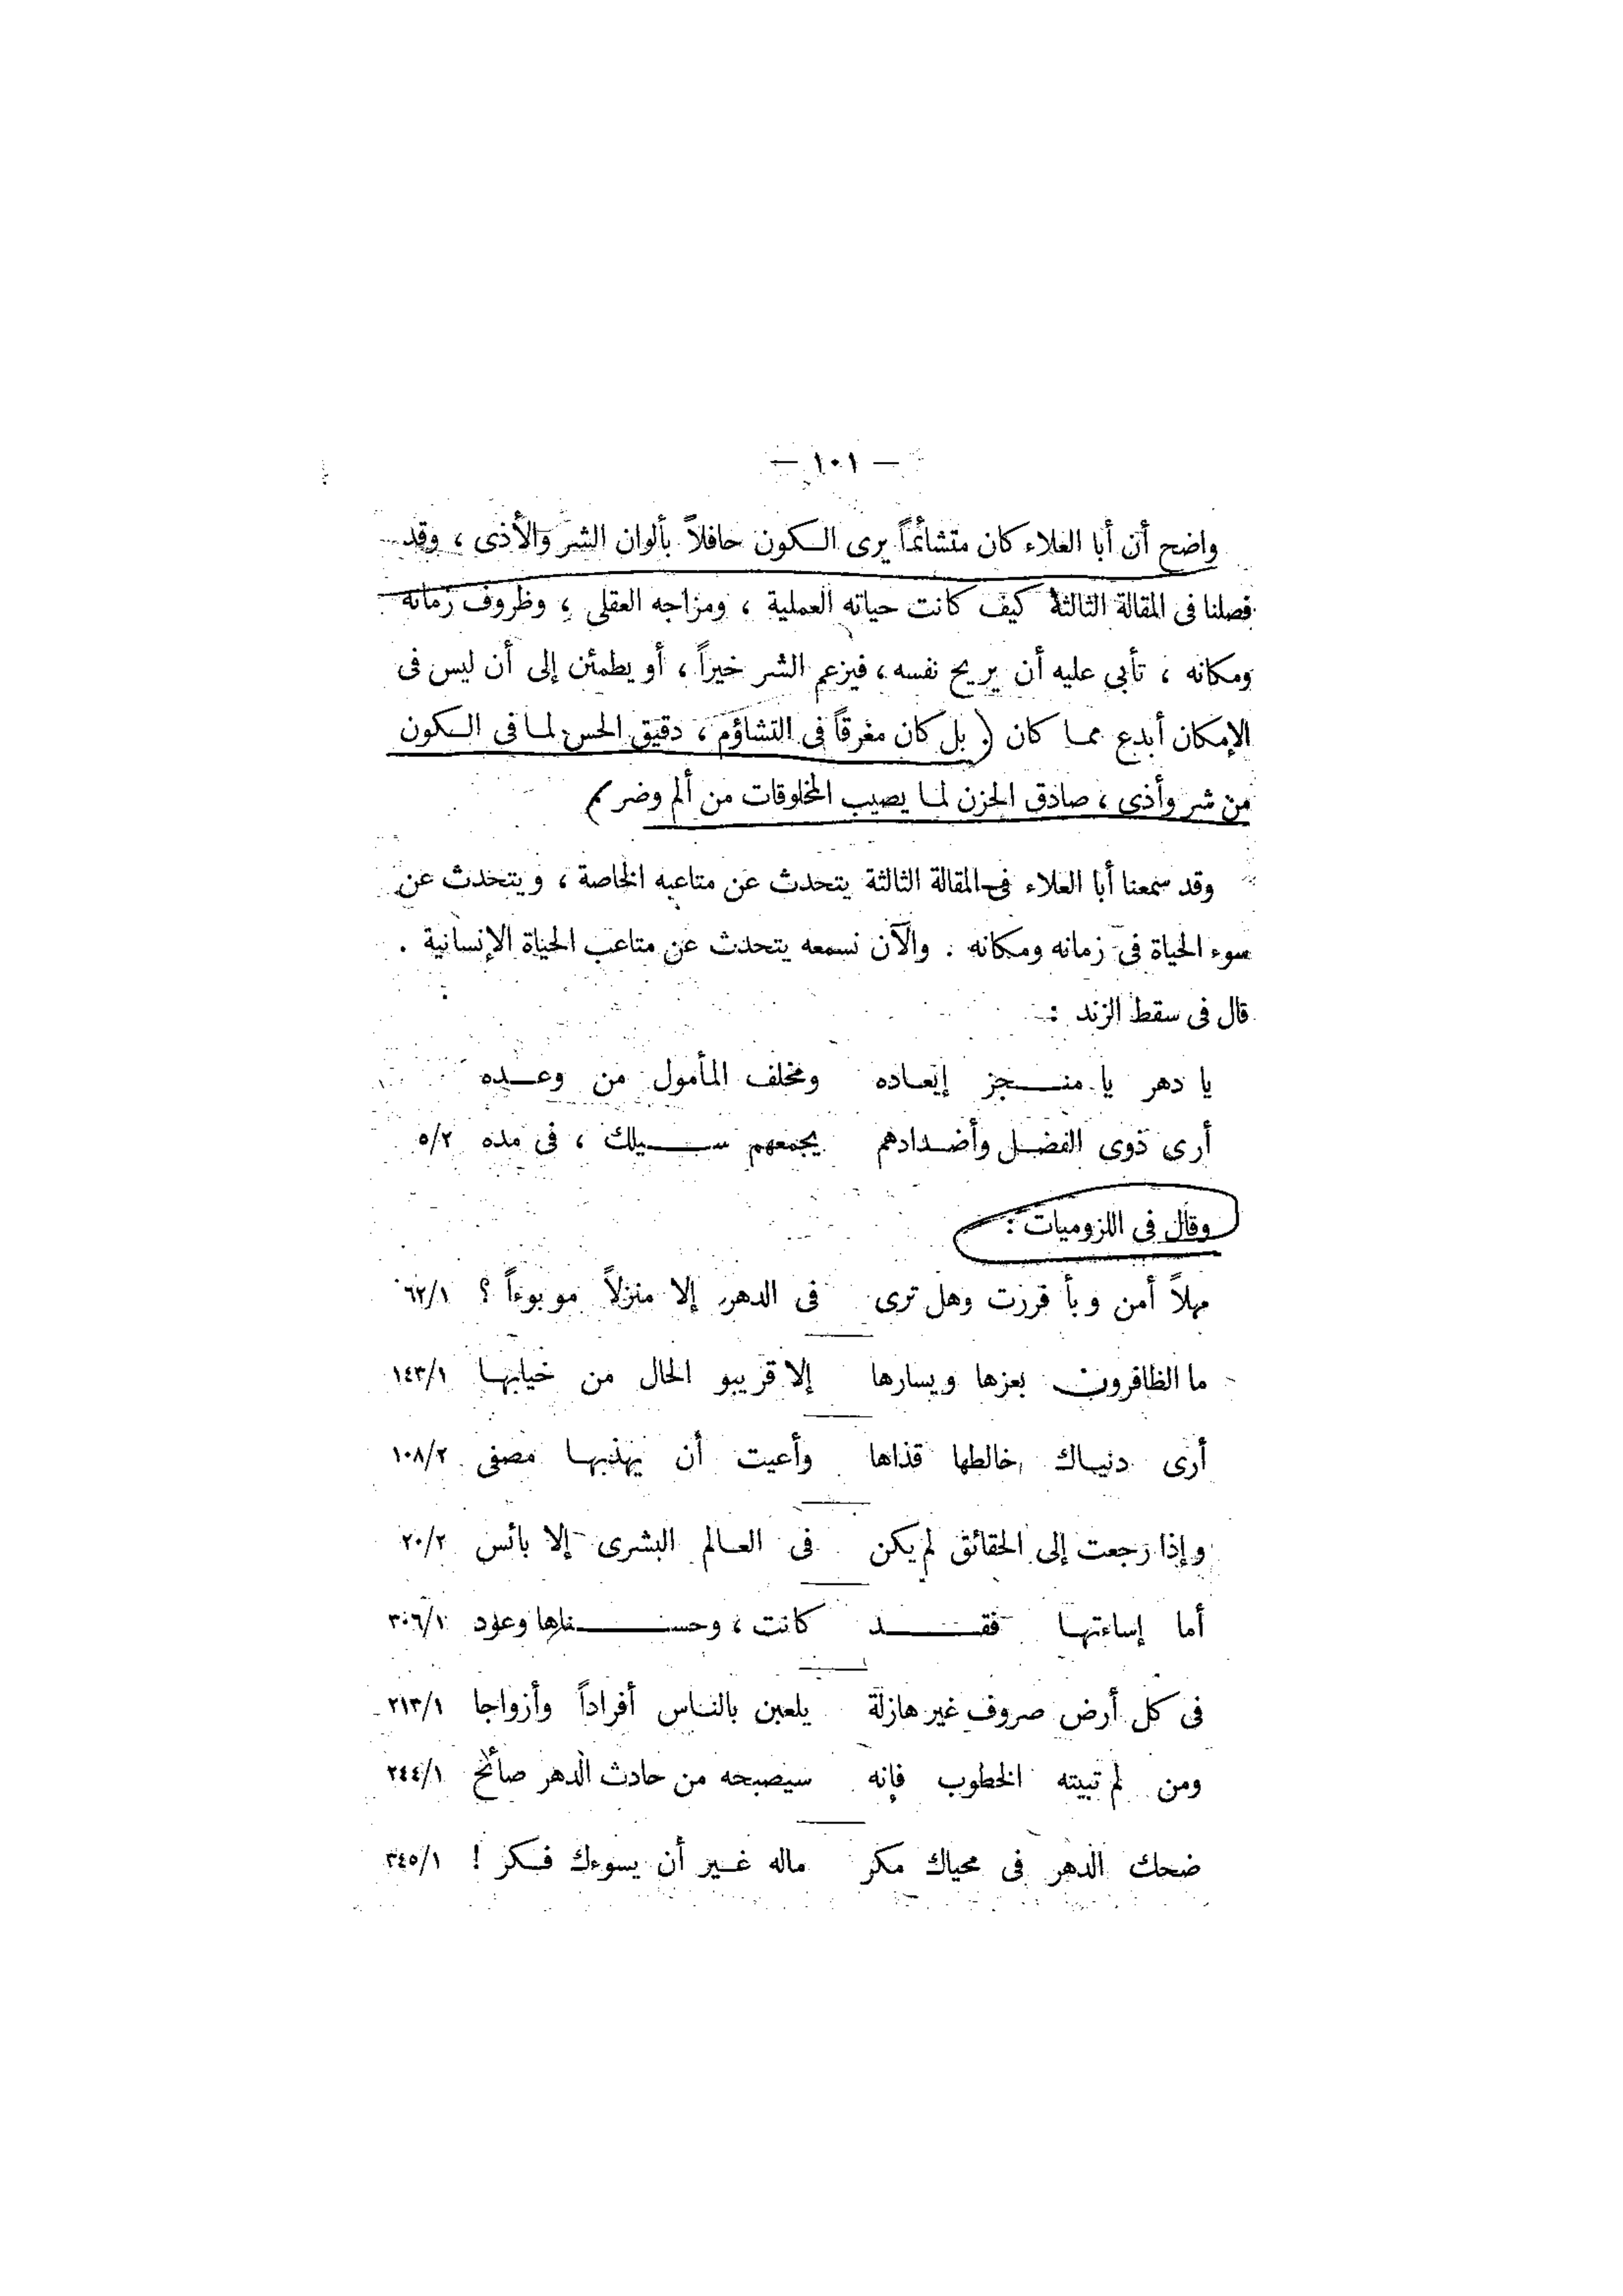 — ١٠١ —
واضح أن أبا العلاء كان متشائماً يرى الكون حافلاً بألوان الشر والأذى ، وقد
فصلنا فى المقالة الثالثة كيف كانت حياته العملية ، ومزاجه العقلى ، وظروف زمانه
ومكانه ، تأبى عليه أن يريح نفسه ، فيزعم الشر خيراً ، أو يطمئن إلى أن ليس فى
الإمكان أبدع مما كان . بل كان مغرقاً فى التشاؤم ، دقيق الحس لما فى الكون
من شر وأذى ، صادق الحزن لما يصيب المخلوقات من ألم وضر
وقد سمعنا أبا العلاء فى المقالة الثالثة يتحدث عن متاعبه الخاصة ، ويتحدث عن
سوء الحياة فى زمانه ومكانه . والآن نسمعه يتحدث عن متاعب الحياة الإنسانية .
قال فى سقط الزند :
يا دهر يا منجز إيعاده ومخلف المأمول من وعده
أرى ذوى الفضل وأضدادهم يجمعهم سيلك ، فى مده ٥/٢
وقال فى اللزوميات :
مهلاً أمن وبأ فررت وهل ترى فى الدهر إلا منزلاً موبوءاً ؟ ٦٢/١
ما الظافرون بعزها ويسارها إلا قريبو الحال من خيابها ١٤٣/١
أرى دنياك خالطها قذاها وأعيت أن يهذبها مصفى ١٠٨/٢
وإذا رجعت إلى الحقائق لم يكن فى العالم البشرى إلا بائس ٢٠/٢
أما إساءتها فقد كانت ، وحسناها وعود ٣٠٦/١
فى كل أرض صروف غير هازلة يلعبن بالناس أفراداً وأزواجا ٢١٣/١
ومن لم تبيته الخطوب فإنه سيصبحه من حادث الدهر صائح ٢٤٤/١
ضحك الدهر فى محياك مكر ماله غير أن يسوءك فكر ! ٣٤٥/١